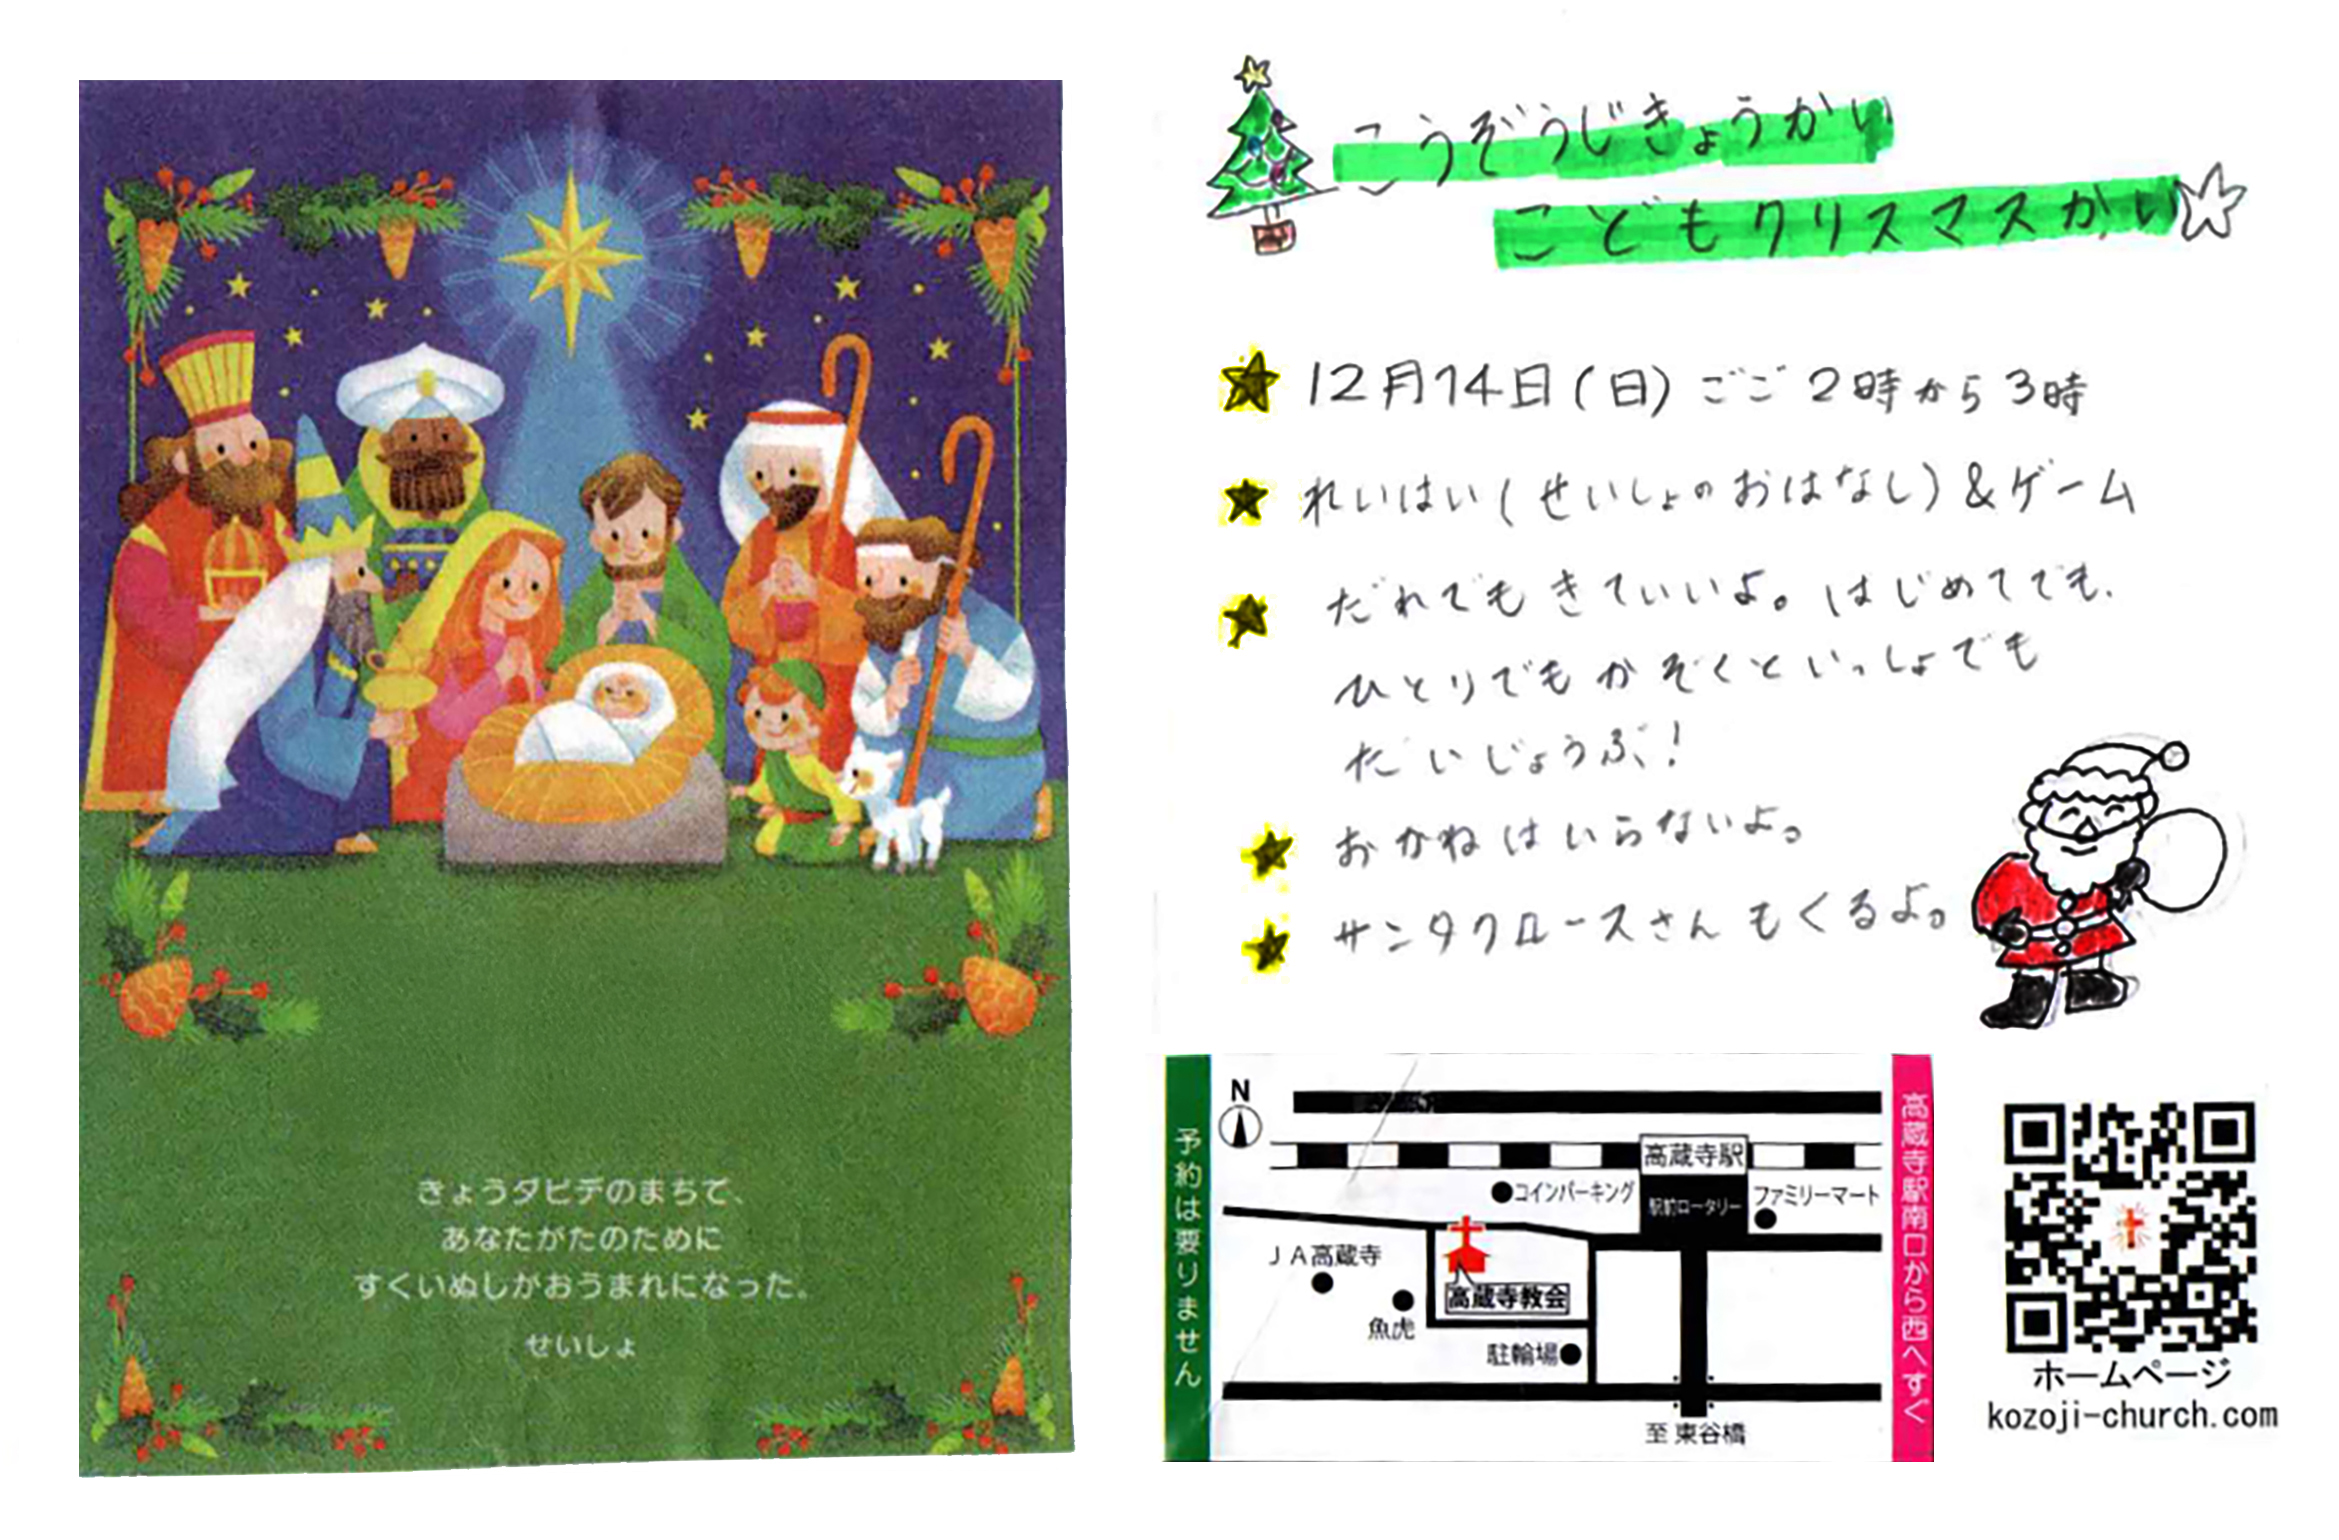 きょうダビデのまちで、
あなたがたのために
すくいぬしがおうまれになった。
せいしょ
こうぞうじきょうかい
こどもクリスマスかい
12月14日(日)ごご2時から3時
れいはい(せいしょのおはなし)&ゲーム
だれでもきていいよ。はじめてでも、
ひとりでもかぞくといっしょでも
だいじょうぶ!
おかねはいらないよ。
サンタクロースさんもくるよ。
予約は要りません
N
高蔵寺駅
コインパーキング
駅前ロータリー
ファミリーマート
JA高蔵寺
高蔵寺教会
魚虎
駐輪場
至 東谷橋
高蔵寺駅南口から西へすぐ
ホームページ
kozoji-church.com